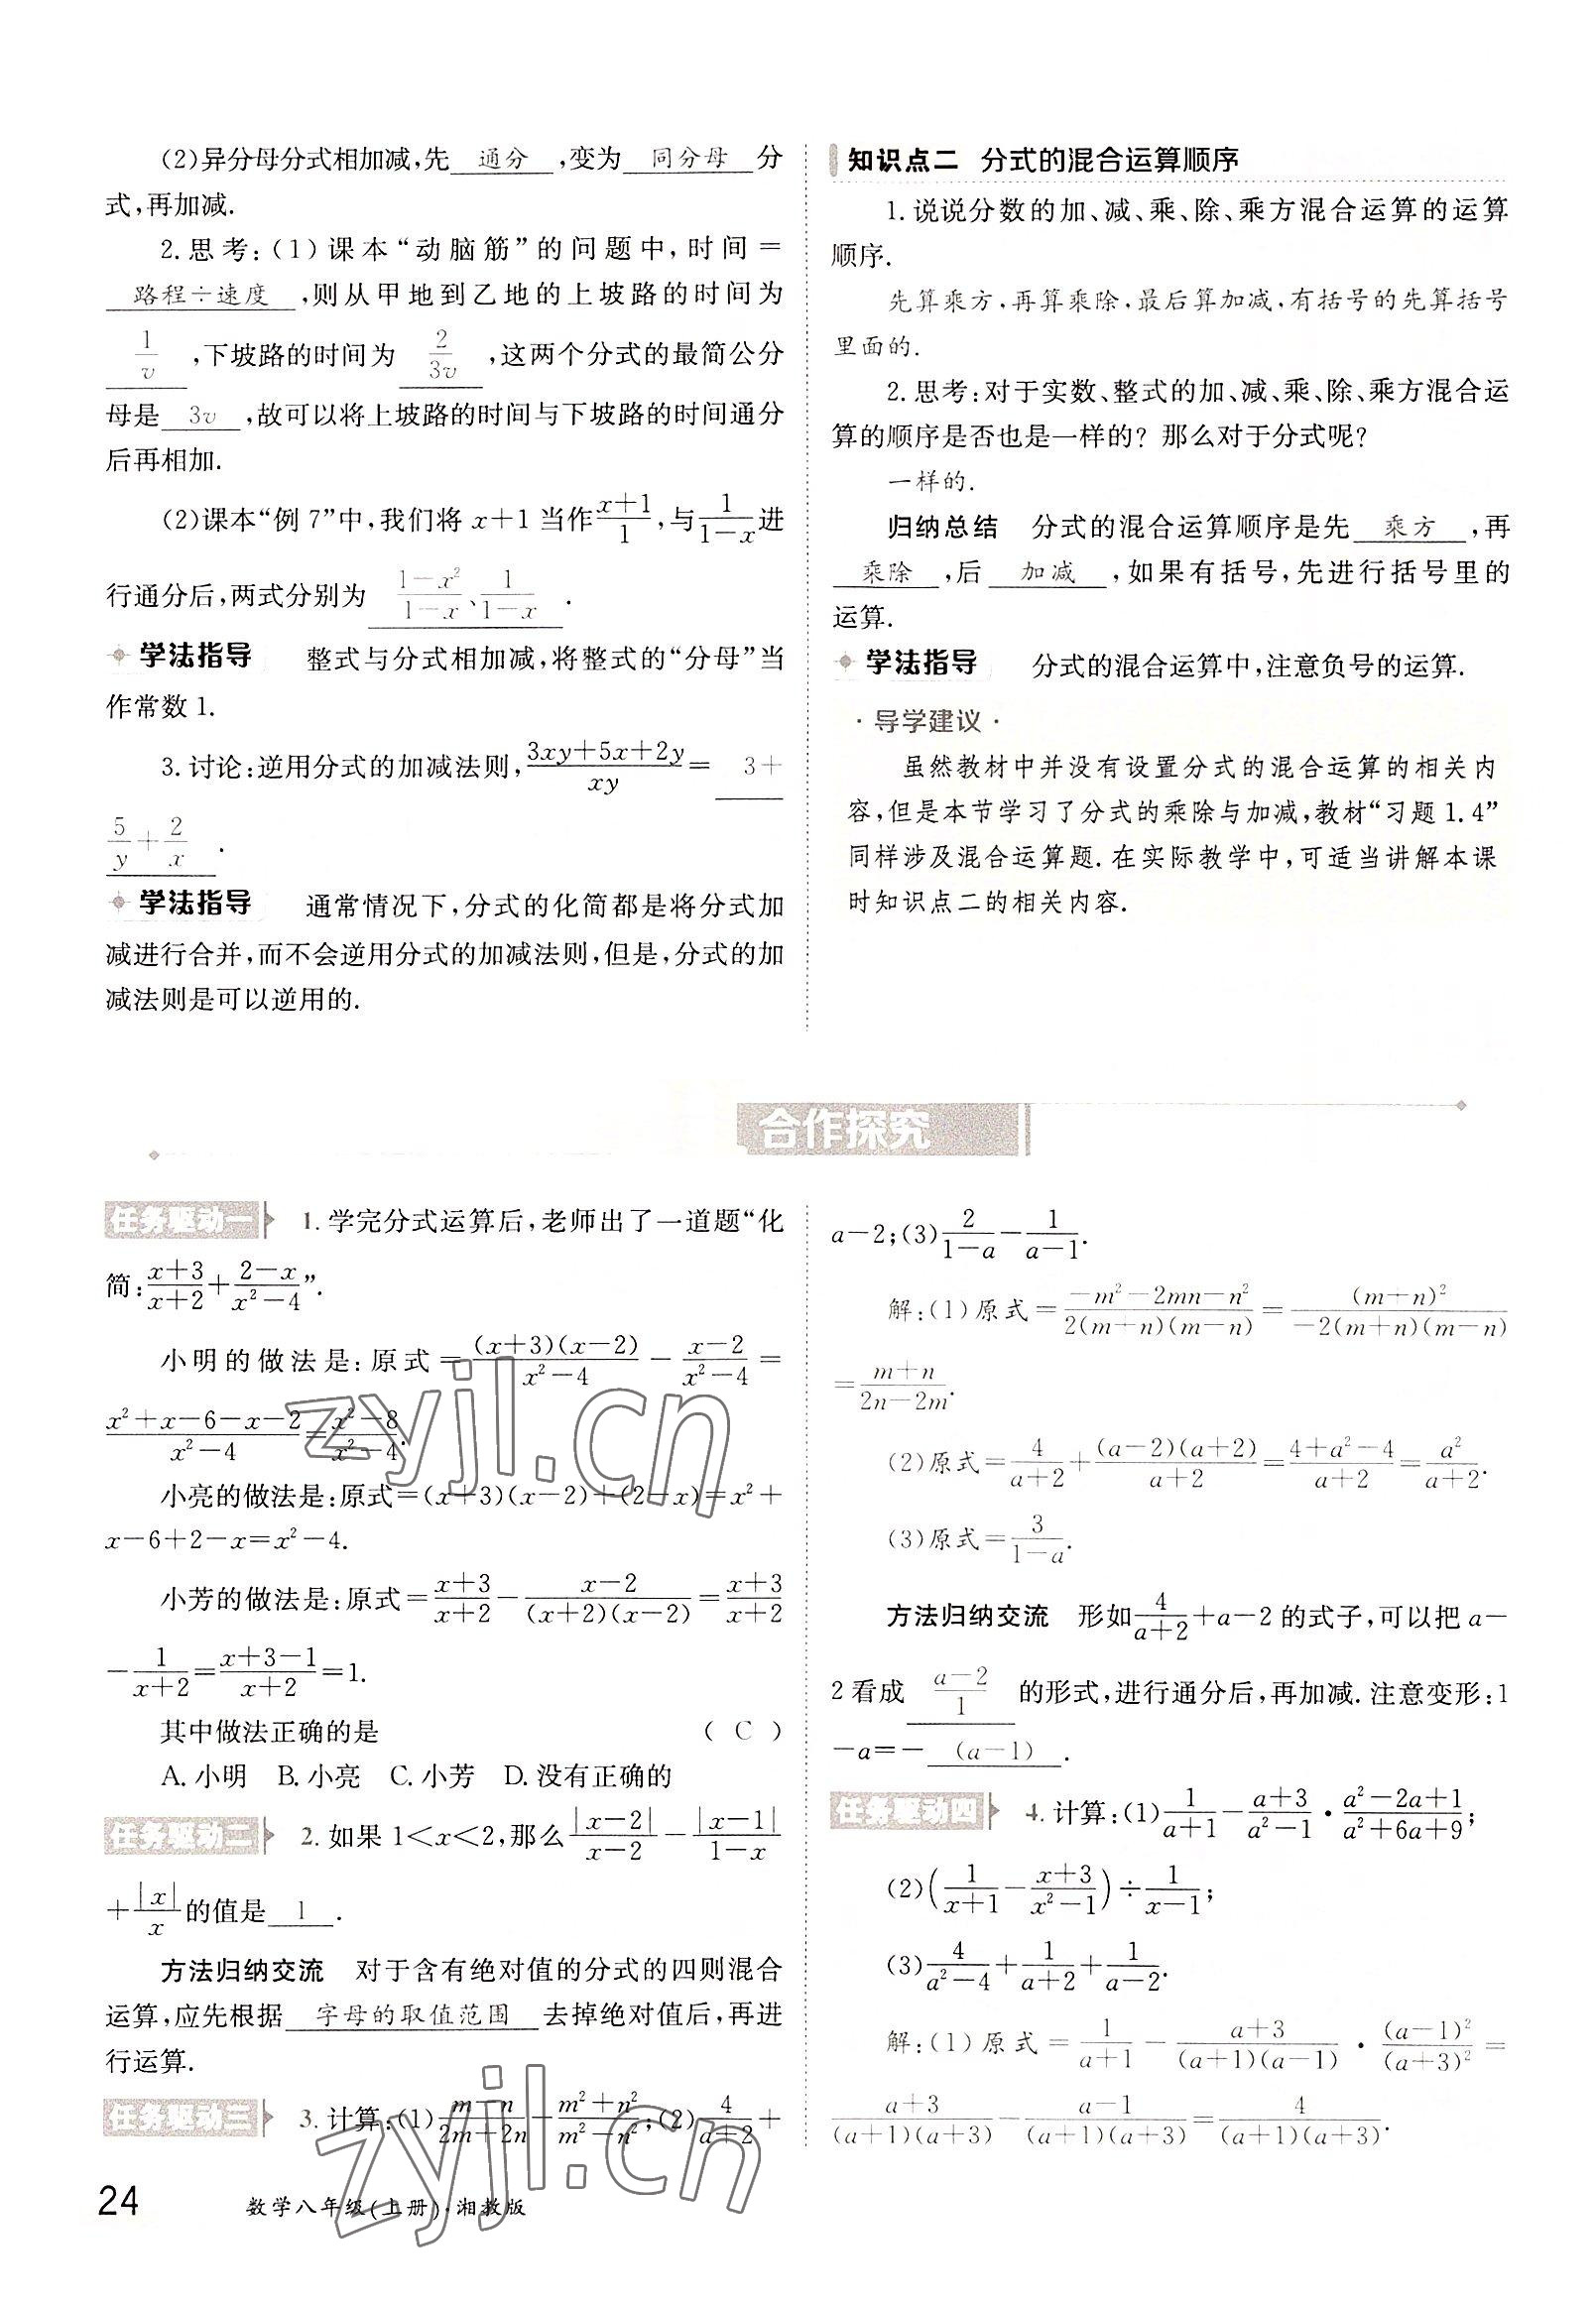 (2)异分母分式相加减,先 通分 ,变为 同分母 分
式,再加减.
2.思考:(1)课本“动脑筋”的问题中,时间=
路程÷速度 ,则从甲地到乙地的上坡路的时间为
1/v ,下坡路的时间为 2/(3v) ,这两个分式的最简公分
母是 3v ,故可以将上坡路的时间与下坡路的时间通分
后再相加.
(2)课本“例7”中,我们将x+1当作(x+1)/1,与1/(1-x)进
行通分后,两式分别为 (1-x²)/(1-x)、1/(1-x) .
学法指导 整式与分式相加减,将整式的“分母”当
作常数1.
3.讨论:逆用分式的加减法则,(3xy+5x+2y)/(xy)= 3+
5/y+2/x .
学法指导 通常情况下,分式的化简都是将分式加
减进行合并,而不会逆用分式的加减法则,但是,分式的加
减法则是可以逆用的.
知识点二 分式的混合运算顺序
1.说说分数的加、减、乘、除、乘方混合运算的运算
顺序.
先算乘方,再算乘除,最后算加减,有括号的先算括号
里面的.
2.思考:对于实数、整式的加、减、乘、除、乘方混合运
算的顺序是否也是一样的?那么对于分式呢?
一样的.
归纳总结 分式的混合运算顺序是先 乘方 ,再
乘除 ,后 加减 ,如果有括号,先进行括号里的
运算.
学法指导 分式的混合运算中,注意负号的运算.
·导学建议·
虽然教材中并没有设置分式的混合运算的相关内
容,但是本节学习了分式的乘除与加减,教材“习题1.4”
同样涉及混合运算题.在实际教学中,可适当讲解本课
时知识点二的相关内容.
合作探究
任务驱动一 1.学完分式运算后,老师出了一道题“化
简:(x+3)/(x+2)+(2-x)/(x²-4)”.
小明的做法是:原式=(x+3)(x-2)/(x²-4)-(x-2)/(x²-4)=
(x²+x-6-x-2)/(x²-4)=(x²-8)/(x²-4).
小亮的做法是:原式=(x+3)(x-2)+(2-x)=x²+
x-6+2-x=x²-4.
小芳的做法是:原式=(x+3)/(x+2)-(x-2)/((x+2)(x-2))=(x+3)/(x+2)
-1/(x+2)=(x+3-1)/(x+2)=1.
其中做法正确的是 ( C )
A.小明 B.小亮 C.小芳 D.没有正确的
任务驱动二 2.如果1<x<2,那么|x-2|/(x-2)-|x-1|/(1-x)
+|x|/x的值是 1 .
方法归纳交流 对于含有绝对值的分式的四则混合
运算,应先根据 字母的取值范围 去掉绝对值后,再进
行运算.
任务驱动三 3.计算:(1)(m-n)/(2m+2n)-(m²+n²)/(m²-n²);(2)4/(a+2)+
a-2;(3)2/(1-a)-1/(a-1).
解:(1)原式=(-m²-2mn-n²)/(2(m+n)(m-n))=(m+n)²/(-2(m+n)(m-n))
=(m+n)/(2n-2m).
(2)原式=4/(a+2)+(a-2)(a+2)/(a+2)=(4+a²-4)/(a+2)=a²/(a+2).
(3)原式=3/(1-a).
方法归纳交流 形如4/(a+2)+a-2的式子,可以把a-
2看成 (a-2)/1 的形式,进行通分后,再加减.注意变形:1
-a=- (a-1) .
任务驱动四 4.计算:(1)1/(a+1)-(a+3)/(a²-1)·(a²-2a+1)/(a²+6a+9);
(2)(1/(x+1)-(x+3)/(x²-1))÷1/(x-1);
(3)4/(a²-4)+1/(a+2)+1/(a-2).
解:(1)原式=1/(a+1)-(a+3)/((a+1)(a-1))·(a-1)²/(a+3)²=
(a+3)/((a+1)(a+3))-(a-1)/((a+1)(a+3))=4/((a+1)(a+3)).
24 数学八年级(上册)·湘教版
zyjl.cn
zyjl.cn